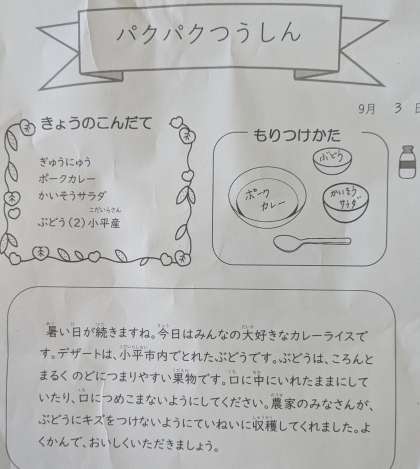 パクパクつうしん
9月 3日
きょうのこんだて
ぎゅうにゅう
ポークカレー
かいそうサラダ
こだいらさん
ぶどう(2)小平産
もりつけかた
ぶどう
ポーク
カレー
かいそう
サラダ
暑い日が続きますね。今日はみんなの大好きなカレーライスで
す。デザートは、小平市内でとれたぶどうです。ぶどうは、ころんと
まるくのどにつまりやすい果物です。口に中にいれたままにして
いたり、口につめこまないようにしてください。農家のみなさんが、
ぶどうにキズをつけないようにていねいに収穫してくれました。よ
くかんで、おいしくいただきましょう。